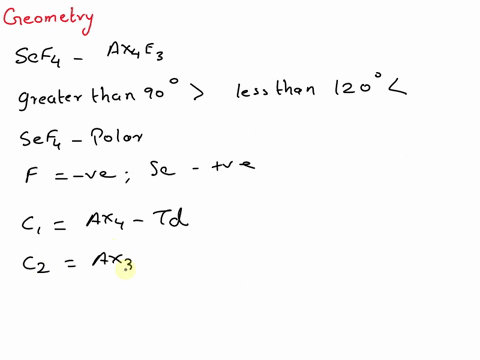 Geometry
SeF4 - AX4E3
greater than 90° > less than 120° <
SeF4 - Polar
F = -ve ; Se - +ve
C1 = AX4 - Td
C2 = AX3